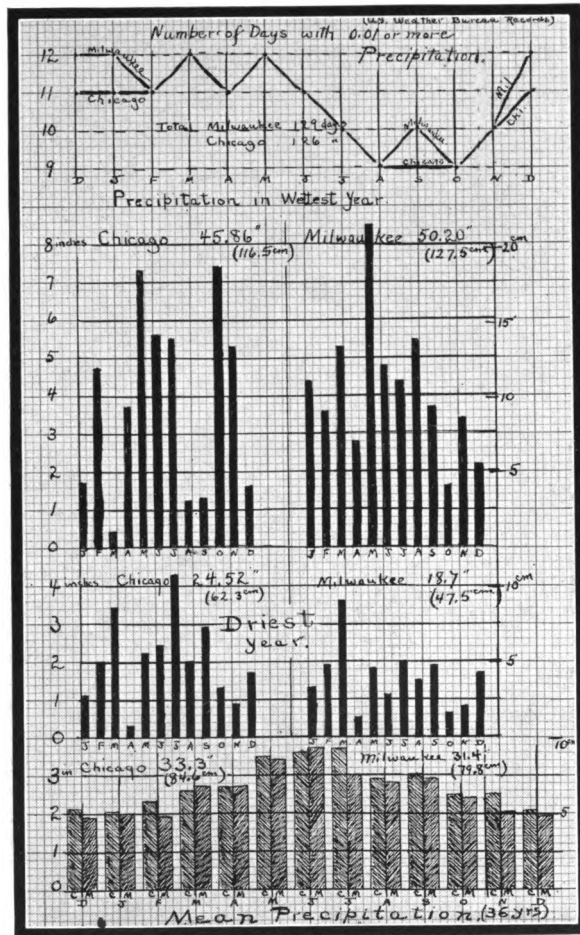 (U.S. Weather Bureau Records)
Number of Days with 0.01 or more
Precipitation.
12
11
10
9
Milwaukee
Chicago
Mil
Chi.
Total Milwaukee 129 days
Chicago 126 "
Milwaukee
Chicago
D J F M A M J J A S O N D
Precipitation in Wettest Year.
8 inches Chicago 45.86" Milwaukee 50.20"
(116.5cm) (127.5cm)
20 cm
7
6
5
4
3
2
1
0
15
10
5
J F M A M J J A S O N D J F M A M J J A S O N D
4 inches Chicago 24.52" Milwaukee 18.7"
(62.3cm) (47.5cm)
10 cm
Driest
year.
3
2
1
0
5
J F M A M J J A S O N D J F M A M J J A S O N D
10 cm
3 in Chicago 33.3" Milwaukee 31.4"
(84.6cm) (79.8cm)
2
1
0
5
C M C M C M C M C M C M C M C M C M C M C M C M C M
D J F M A M J J A S O N D
Mean Precipitation. (36 yrs)